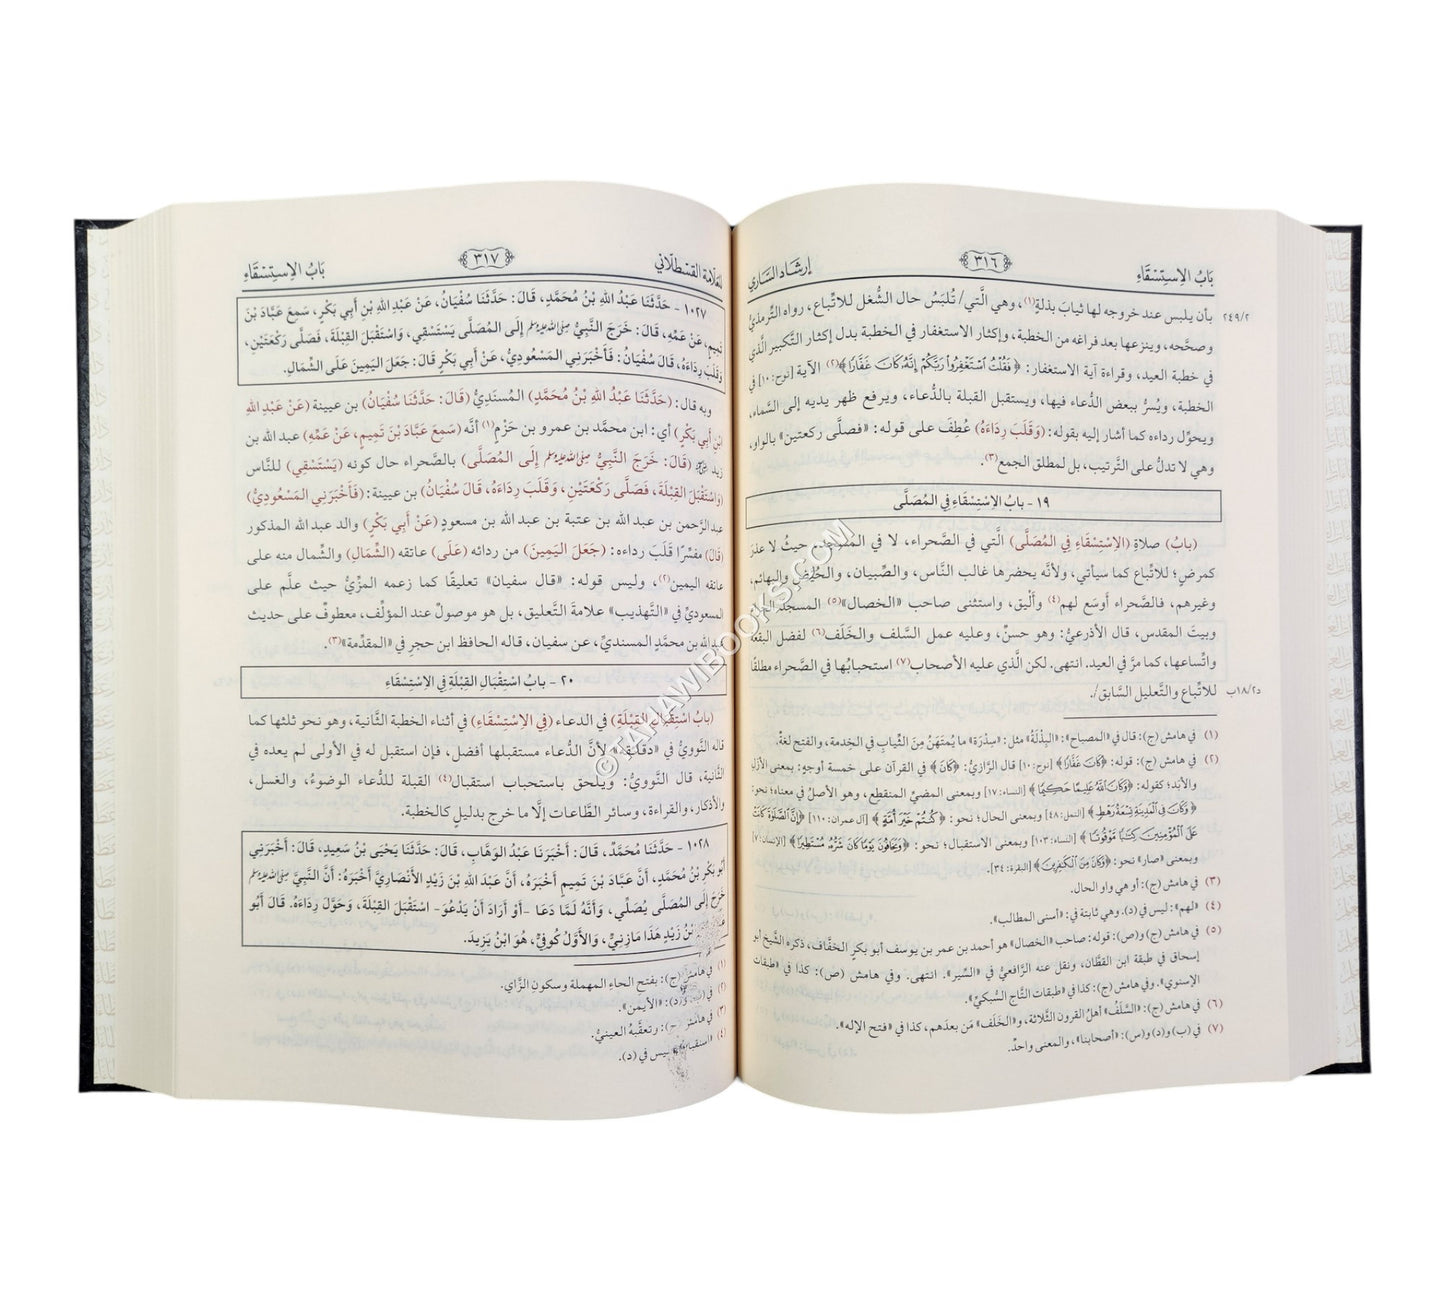 بَابُ الاِسْتِسْقَاءِ ٣١٦ إرشَاد السَّاري
بأن يلبس عند خروجه لها ثيابَ بذلةٍ(١)، وهي الَّتي/ تُلبَسُ حال الشُّغل للاتِّباع، رواه التِّرمذيُّ
٢٤٩/٢
وصحَّحه، وينزعها بعد فراغه من الخطبة، وإكثار الاستغفار في الخطبة بدل إكثار التَّكبير الَّذي
في خطبة العيد، وقراءة آية الاستغفار: ﴿فَقُلْتُ اسْتَغْفِرُوا رَبَّكُمْ إِنَّهُ كَانَ غَفَّارًا﴾(٢) الآية [نوح: ١٠] في
الخطبة، ويُسرُّ ببعض الدُّعاء فيها، ويستقبل القبلة بالدُّعاء، ويرفع ظهر يديه إلى السَّماء،
ويحوِّل رداءه كما أشار إليه بقوله: (وَقَلَبَ رِدَاءَهُ) عُطِفَ على قوله: «فصلَّى ركعتين» بالواو،
وهي لا تدلُّ على التَّرتيب، بل لمطلق الجمع(٣).
١٩ - بابُ الاِسْتِسْقَاءِ فِي المُصَلَّى
(بابُ) صلاةِ (الاِسْتِسْقَاءِ فِي المُصَلَّى) الَّتي في الصَّحراء، لا في المسجد، حيثُ لا عذرَ
كمرضٍ؛ للاتِّباع كما سيأتي، ولأنَّه يحضرها غالب النَّاس، والصِّبيان، والحُيَّض والبهائم،
وغيرهم، فالصَّحراء أوسَع لهم(٤) وأَليق، واستثنى صاحب «الخصال»(٥) المسجد الحرام
وبيتَ المقدس، قال الأذرعيُّ: وهو حسنٌ، وعليه عمل السَّلف والخَلَف(٦) لفضل البقعة
واتِّساعها، كما مرَّ في العيد. انتهى. لكن الَّذي عليه الأصحاب(٧) استحبابُها في الصَّحراء مطلقًا
للاتِّباع والتَّعليل السَّابق/.
د١٨/٢ب
(١) في هامش (ج): قال في «المصباح»: «البِذْلَةُ» مثل: «سِدْرَة» ما يُمتَهَنُ مِنَ الثِّيابِ في الخِدمة، والفتح لغةٌ.
(٢) في هامش (ج): قوله: ﴿كَانَ غَفَّارًا﴾ [نوح: ١٠] قال الرَّازيُّ: ﴿كَانَ﴾ في القرآن على خمسة أوجهٍ: بمعنى الأزل
والأبد؛ كقوله: ﴿وَكَانَ اللَّهُ عَلِيمًا حَكِيمًا﴾ [النساء: ١٧] وبمعنى المضيِّ المنقطع، وهو الأصلُ في معناه؛ نحو:
﴿وَكَانَ فِي الْمَدِينَةِ تِسْعَةُ رَهْطٍ﴾ [النمل: ٤٨] وبمعنى الحال؛ نحو: ﴿كُنْتُمْ خَيْرَ أُمَّةٍ﴾ [آل عمران: ١١٠] ﴿إِنَّ الصَّلَاةَ كَانَتْ
عَلَى الْمُؤْمِنِينَ كِتَابًا مَوْقُوتًا﴾ [النساء: ١٠٣] وبمعنى الاستقبال؛ نحو: ﴿وَيَخَافُونَ يَوْمًا كَانَ شَرُّهُ مُسْتَطِيرًا﴾ [الإنسان: ٧]
وبمعنى «صار» نحو: ﴿وَكَانَ مِنَ الْكَافِرِينَ﴾ [البقرة: ٣٤].
(٣) في هامش (ج): أو هي واو الحال.
(٤) «لهم»: ليس في (د). وهي ثابتة في: «أسنى المطالب».
(٥) في هامش (ج) و(ص): قوله: صاحب «الخصال» هو أحمد بن عمر بن يوسف أبو بكرٍ الخفَّاف، ذكره الشَّيخ أبو
إسحاق في طبقة ابن القطَّان، ونقل عنه الرَّافعيُّ في «السِّير». انتهى. وفي هامش (ص): كذا في «طبقات
الإسنوي». وفي هامش (ج): كذا في «طبقات التَّاج السُّبكيِّ».
(٦) في هامش (ج): «السَّلَفُ» أهلُ القرون الثَّلاثة، و«الخَلَف» مَن بعدَهم، كذا في «فتح الإله».
(٧) في (ب) و(د) و(س): «أصحابنا»، والمعنى واحدٌ.
للعلَّامة القسْطلّاني ٣١٧ بَابُ الاِسْتِسْقَاءِ
١٠٢٧ - حَدَّثَنَا عَبْدُ اللهِ بْنُ مُحَمَّدٍ، قَالَ: حَدَّثَنَا سُفْيَانُ، عَنْ عَبْدِ اللهِ بْنِ أَبِي بَكْرٍ، سَمِعَ عَبَّادَ بْنَ
تَمِيمٍ، عَنْ عَمِّهِ، قَالَ: خَرَجَ النَّبِيُّ صلى الله عليه وسلم إِلَى المُصَلَّى يَسْتَسْقِي، وَاسْتَقْبَلَ القِبْلَةَ، فَصَلَّى رَكْعَتَيْنِ،
وَقَلَبَ رِدَاءَهُ، قَالَ سُفْيَانُ: فَأَخْبَرَنِي المَسْعُودِيُّ، عَنْ أَبِي بَكْرٍ قَالَ: جَعَلَ اليَمِينَ عَلَى الشِّمَالِ.
وبه قال: (حَدَّثَنَا عَبْدُ اللهِ بْنُ مُحَمَّدٍ) المُسنَديُّ (قَالَ: حَدَّثَنَا سُفْيَانُ) بن عيينة (عَنْ عَبْدِ اللهِ
ابْنِ أَبِي بَكْرٍ) أي: ابن محمَّد بن عمرو بن حَزْمٍ(١) أنَّه (سَمِعَ عَبَّادَ بْنَ تَمِيمٍ، عَنْ عَمِّهِ) عبد الله بن
زيد (قَالَ: خَرَجَ النَّبِيُّ صلى الله عليه وسلم إِلَى المُصَلَّى) بالصَّحراء حال كونه (يَسْتَسْقِي) للنَّاس
(وَاسْتَقْبَلَ القِبْلَةَ، فَصَلَّى رَكْعَتَيْنِ، وَقَلَبَ رِدَاءَهُ، قَالَ سُفْيَانُ) بن عيينة: (فَأَخْبَرَنِي المَسْعُودِيُّ)
عبد الرَّحمن بن عبد الله بن عتبة بن عبد الله بن مسعودٍ (عَنْ أَبِي بَكْرٍ) والد عبد الله المذكور
(قَالَ) مفسِّرًا قَلْبَ رداءه: (جَعَلَ اليَمِينَ) من ردائه (عَلَى) عاتقه (الشِّمَالِ) والشِّمال منه على
عاتقه اليمين(٢)، وليس قوله: «قال سفيان» تعليقًا كما زعمه المزِّيُّ حيث علَّم على
المسعوديِّ في «التَّهذيب» علامةَ التَّعليق، بل هو موصولٌ عند المؤلِّف، معطوفٌ على حديث
عبد الله بن محمَّد المسنديِّ، عن سفيان، قاله الحافظ ابن حجرٍ في «المقدِّمة»(٣).
٢٠ - بابُ اسْتِقْبَالِ القِبْلَةِ فِي الاِسْتِسْقَاءِ
(بابُ اسْتِقْبَالِ القِبْلَةِ) في الدعاء (فِي الاِسْتِسْقَاءِ) في أثناء الخطبة الثَّانية، وهو نحو ثلثها كما
قاله النَّوويُّ في «دقائقه»، لأنَّ الدُّعاء مستقبلها أفضل، فإن استقبل له في الأولى لم يعده في
الثَّانية، قال النَّوويُّ: ويلحق باستحباب استقبال(٤) القبلة للدُّعاء الوضوءُ، والغسل،
والأذكار، والقراءة، وسائر الطَّاعات إلَّا ما خرج بدليلٍ كالخطبة.
١٠٢٨ - حَدَّثَنَا مُحَمَّدٌ، قَالَ: أَخْبَرَنَا عَبْدُ الوَهَّابِ، قَالَ: حَدَّثَنَا يَحْيَى بْنُ سَعِيدٍ، قَالَ: أَخْبَرَنِي
أَبُو بَكْرِ بْنُ مُحَمَّدٍ، أَنَّ عَبَّادَ بْنَ تَمِيمٍ أَخْبَرَهُ، أَنَّ عَبْدَ اللهِ بْنَ زَيْدٍ الأَنْصَارِيَّ أَخْبَرَهُ: أَنَّ النَّبِيَّ صلى الله عليه وسلم
خَرَجَ إِلَى المُصَلَّى يُصَلِّي، وَأَنَّهُ لَمَّا دَعَا -أَوْ أَرَادَ أَنْ يَدْعُوَ- اسْتَقْبَلَ القِبْلَةَ، وَحَوَّلَ رِدَاءَهُ. قَالَ أَبُو
بْنُ زَيْدٍ هَذَا مَازِنِيٌّ، وَالأَوَّلُ كُوفِيٌّ، هُوَ ابْنُ يَزِيدَ.
(١) في هامش (ج): بفتح الحاء المهملة وسكون الزَّاي.
(٢) في (ب) و(د): «الأيمن».
(٣) في هامش (ج): وتعقَّبهُ العينيُّ.
(٤) «استقبال»: ليس في (د).
©TAHAWIBOOKS.COM